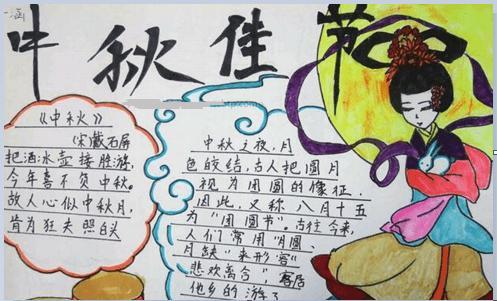 涵
中秋佳节
《中秋》
宋戴石屏
把酒冰壶接胜游,
今年喜不负中秋。
故人心似中秋月,
肯为狂夫照白头
中秋之夜,月
色皎结,古人把圆月
视为团圆的像征,
因此,又称八月十五
为“团圆节”。古往今来,
人们常用“月圆、
月缺”来形容“
悲欢离合”,客居
他乡的游子